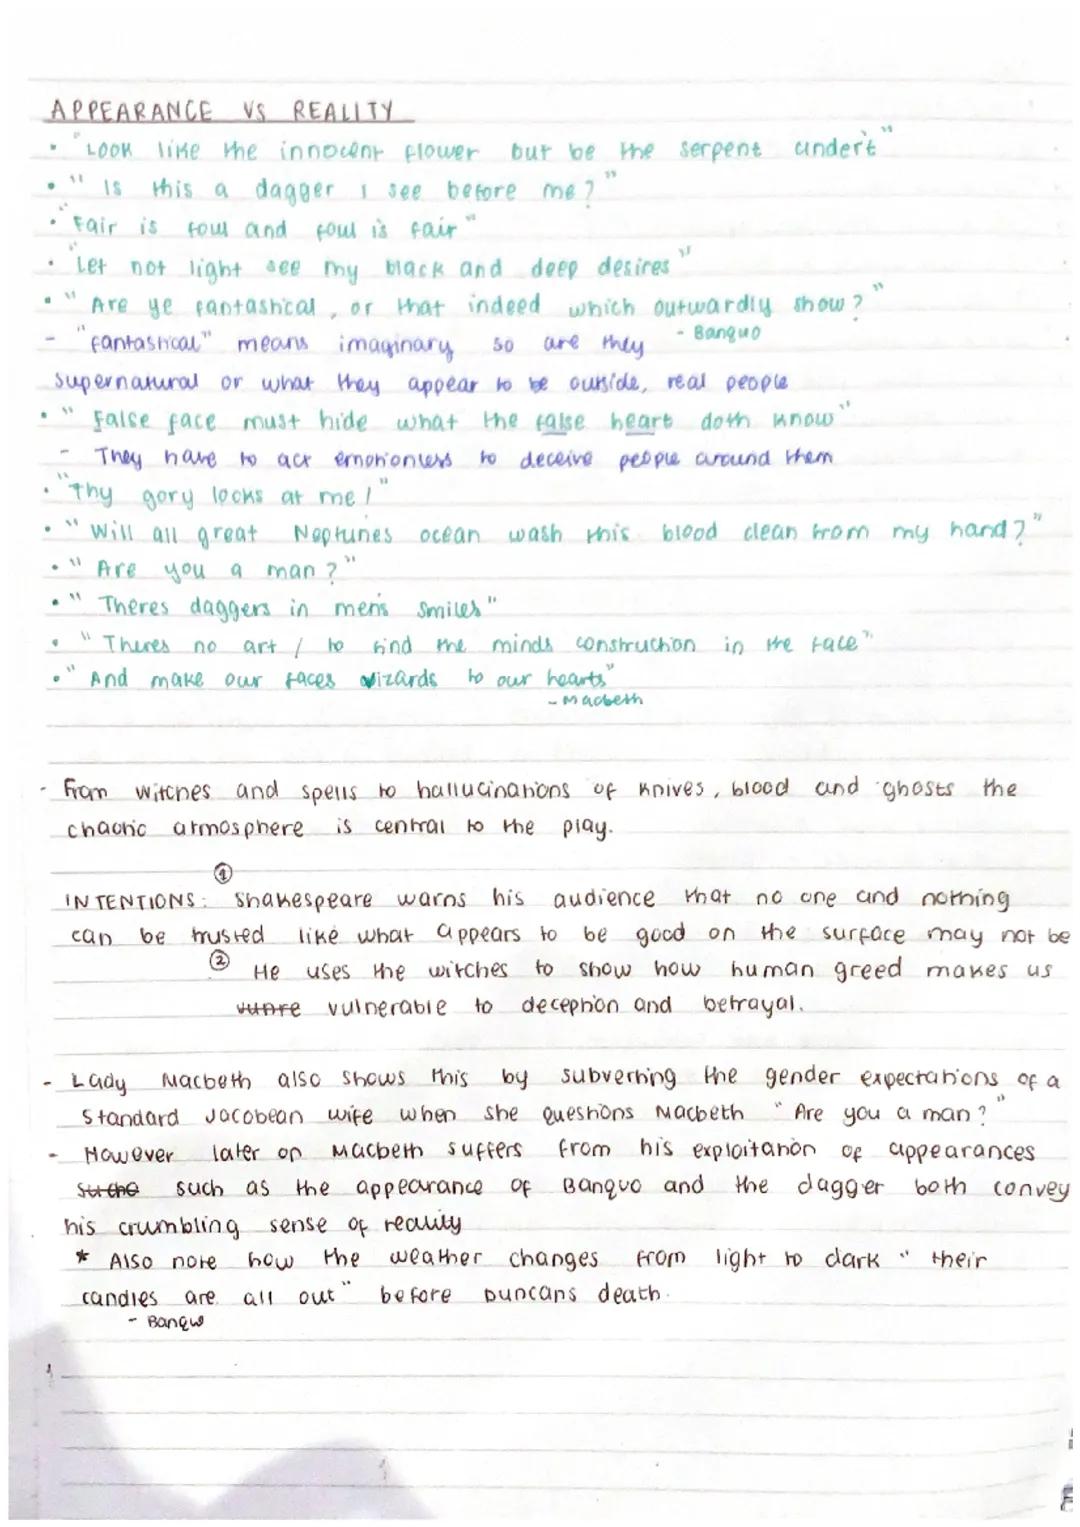 APPEARANCE VS REALITY
• "Look like the innocent flower but be the serpent undert"
• "Is this a dagger I see before me?"
• "Fair is foul and foul is fair"
• "Let not light see my black and deep desires"
• "Are ye fantastical, or that indeed which outwardly show?"
- Banquo
- "fantastical" means imaginary so are they
supernatural or what they appear to be outside, real people
• "False face must hide what the false heart doth know"
- They have to act emotionless to deceive people around them
• "Thy gory locks at me!"
• "Will all great Neptunes ocean wash this blood clean from my hand?"
• "Are you a man?"
• "Theres daggers in mens smiles"
• "Theres no art / to find the minds construction in the face"
• "And make our faces vizards to our hearts"
- Macbeth
- From witches and spells to hallucinations of knives, blood and ghosts the
chaotic atmosphere is central to the play.
①
INTENTIONS: Shakespeare warns his audience that no one and nothing
can be trusted like what appears to be good on the surface may not be
② He uses the witches to show how human greed makes us
vulnerable to deception and betrayal.
- Lady Macbeth also shows this by subverting the gender expectations of a
standard Jacobean wife when she questions Macbeth "Are you a man?"
- However later on Macbeth suffers from his exploitation of appearances
such as the appearance of Banquo and the dagger both convey
his crumbling sense of reality
* Also note how the weather changes from light to dark "their
candles are all out" before Duncans death.